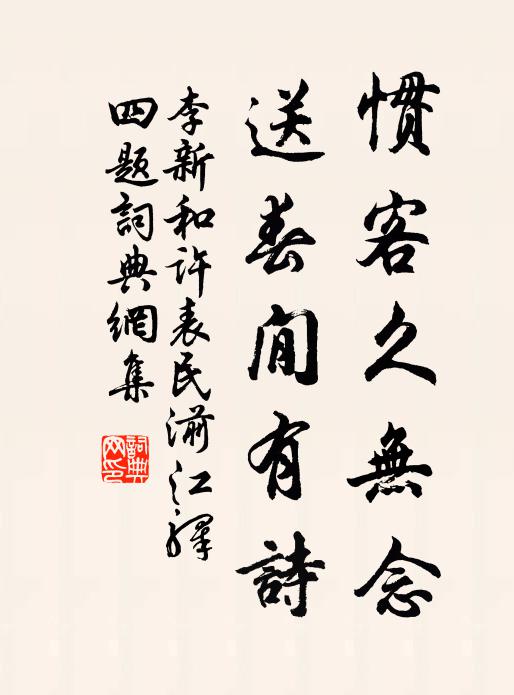 慣客久無念
送春閒有詩
李新和許表民湔江驛
四題詞典網集
詞典網印